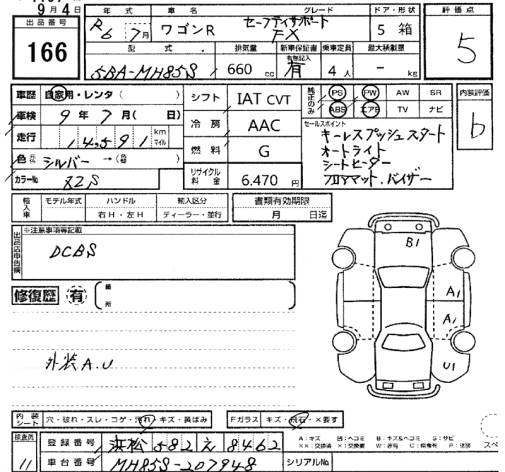 9月4日
出品番号
166
年式 車名 グレード ドア・形状 評価点
R6 7月 ワゴンR セーフティサポート FX 5 箱 5
型式 排気量 新車保証書 乗車定員 最大積載量
5BA-MH85S 660cc 有 4人 - kg
車歴 自家用・レンタ( ) シフト IAT CVT 純正のみ PS PW AW SR 内装評価
車検 9年7月(日) 冷房 AAC ABS エアB TV ナビ b
走行 14,591 km マイル 燃料 G セールスポイント
キーレスプッシュスタート
オートライト
シートヒーター
フロアマット.バイザー
色 元色 シルバー→色替( )
カラーNo. XZS リサイクル料金 6,470円
輸入車 モデル年式 ハンドル 右H・左H 輸入区分 ディーラー・並行 書類有効期限 月 日迄
出品店申告欄 ※注意事項等記載
DCBS
修復歴 有 箇所
B1
A1
A1
U1
外装A.U
内装シート 穴・破れ・スレ・コゲ・汚れ・キズ・黄ばみ Fガラス キズ・飛石・×要す
検査員 11
登録番号 浜松 582 え 8462
車台番号 MH85S-207948 シリアルNo.